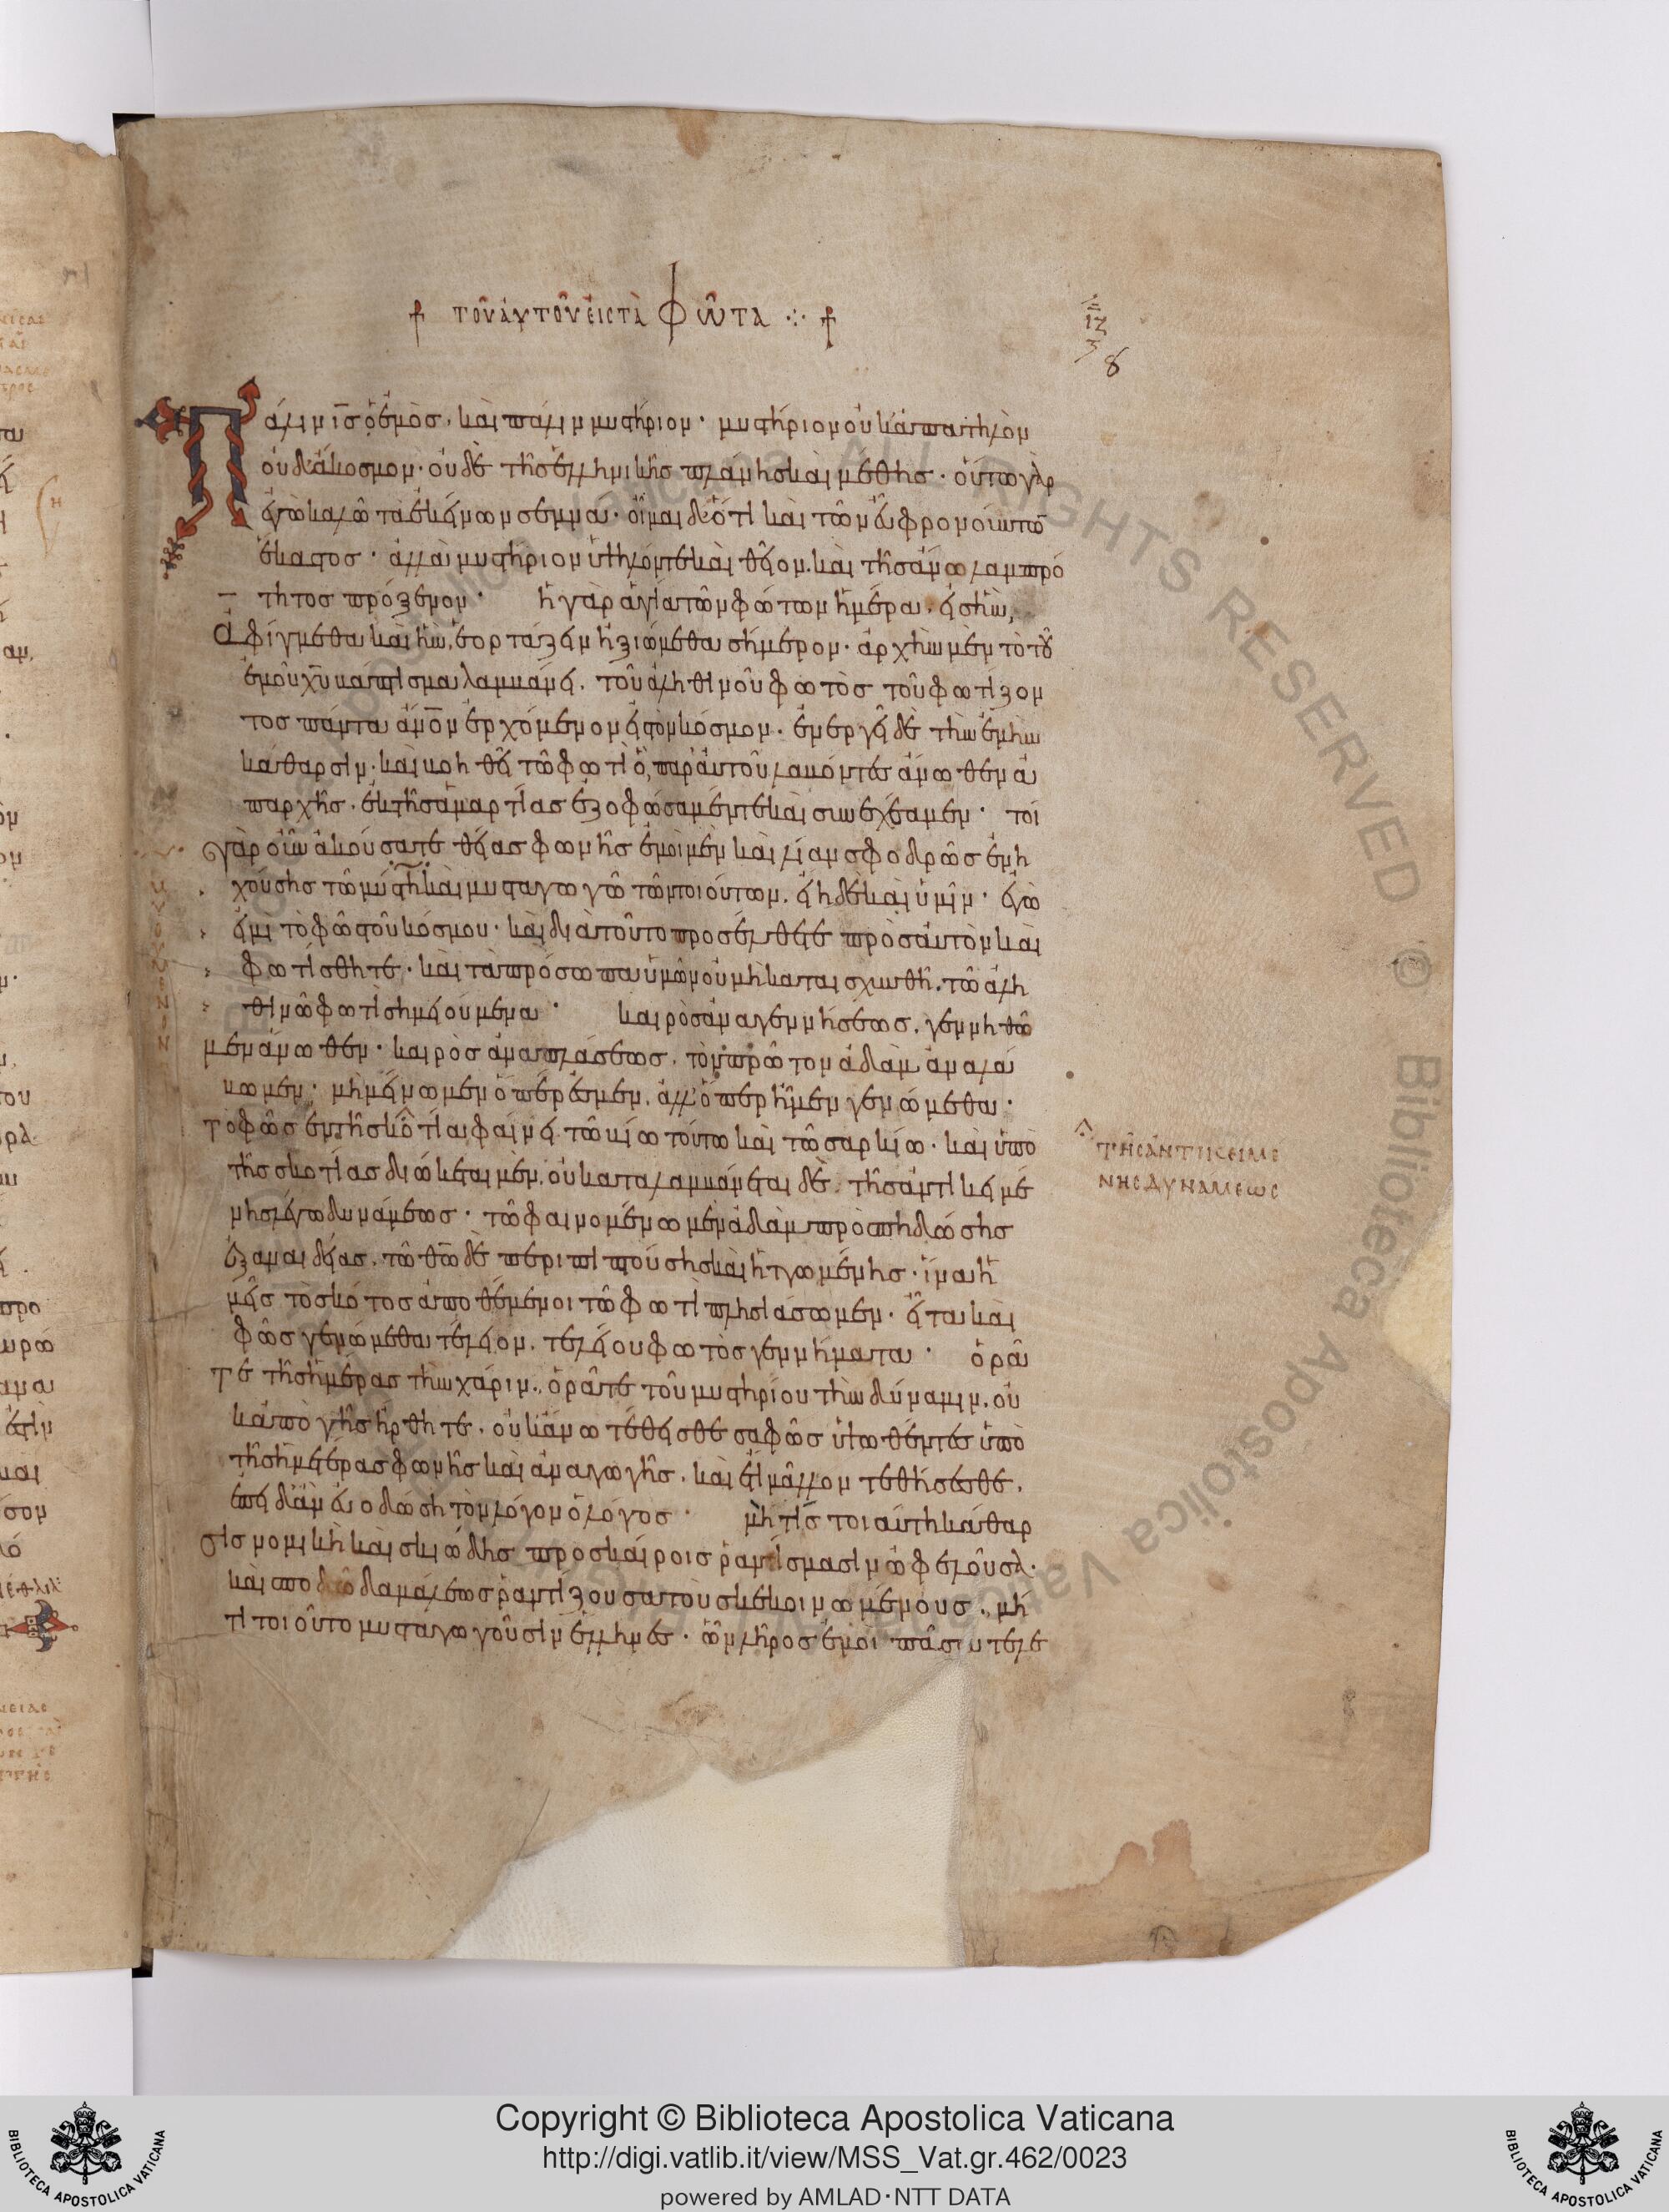 τοῦ αὐτοῦ εἰς τὰ Φῶτα
Πάλιν ις ὁ ἐμὸς· καὶ πάλιν μυστήριον· μυστήριον οὐκ ἀπατηλὸν
οὐδ' ἄκοσμον· οὐδὲ τῆς ἑλληνικῆς πλάνης καὶ μέθης· οὕτω γὰρ
ἐγὼ καλῶ τὰ ἐκείνων σεμνά· οἶμαι δ' ὅτι καὶ τῶν εὖ φρονούντων
ἕκαστος· ἀλλὰ μυστήριον ὑψηλόν τε καὶ θεῖον· καὶ τῆς ἄνω λαμπρό
τητος πρόξενον· ἡ γὰρ ἁγία τῶν φώτων ἡμέρα, εἰς ἣν
ἀφίγμεθα καὶ ἣν ἑορτάζειν ἠξιώμεθα σήμερον· ἀρχὴν μὲν τὸ τοῦ
ἐμοῦ χυ βάπτισμα λαμβάνει, τοῦ ἀληθινοῦ φωτὸς τοῦ φωτίζον
τος πάντα ἀνον ἐρχόμενον εἰς τὸν κόσμον· ἐνεργεῖ δὲ τὴν ἐμὴν
κάθαρσιν· καὶ βοηθεῖ τῷ φωτὶ ὃ παρ' αὐτοῦ λαβόντες ἄνωθεν ἀ
παρχῆς, ἐκ τῆς ἁμαρτίας ἐζοφώσαμέν τε καὶ συνεχέαμεν· τοι
γὰρ οὖν ἀκούσατε θείας φωνῆς ἐμοὶ μὲν καὶ λίαν σφοδρῶς ἐνη
χούσης τῷ μύστῃ καὶ μυσταγωγῷ τῶν τοιούτων, εἴη δὲ καὶ ὑμῖν· ἐγώ
εἰμι τὸ φῶς τοῦ κόσμου· καὶ διὰ τοῦτο προσέλθετε πρὸς αὐτὸν καὶ
φωτίσθητε· καὶ τὰ πρόσωπα ὑμῶν οὐ μὴ καταισχυνθῇ, τῷ ἀλη
θινῷ φωτὶ σημειούμενα· καιρὸς ἀναγεννήσεως, γεννηθῶ
μεν ἄνωθεν· καιρὸς ἀναπλάσεως, τὸν πρῶτον ἀδὰμ ἀναλά
βωμεν· μὴ μείνωμεν ὅπερ ἐσμεν, ἀλλ' ὅπερ ἦμεν γενώμεθα·
τὸ φῶς ἐν τῇ σκοτίᾳ φαίνει τῷ βίῳ τούτῳ καὶ τῷ σαρκίῳ· καὶ ὑπὸ
τῆς σκοτίας διώκεται μὲν, οὐ καταλαμβάνεται δὲ, τῆς ἀντικειμέ
νης λέγω δυνάμεως· τῷ φαινομένῳ μὲν ἀδὰμ προσπηδώσης
ἐξ ἀναιδείας, τῷ θω δὲ περιπιπτούσης καὶ ἡττωμένης· ἵν' ἡ
μεῖς τὸ σκότος ἀποθέμενοι τῷ φωτὶ πλησιάσωμεν· εἶτα καὶ
φῶς γενώμεθα τέλειον, τελείου φωτὸς γεννήματα· ὁρᾶ
τε τῆς ἡμέρας τὴν χάριν, ὁρᾶτε τοῦ μυστηρίου τὴν δύναμιν, οὐ
κ ἀπὸ γῆς ἤρθητε, οὐκ ἄνω τέθεισθε σαφῶς ὑψωθέντες ὑπὸ
τῆς ἡμετέρας φωνῆς καὶ ἀναγωγῆς, καὶ ἔτι μᾶλλον τεθήσεσθε,
ἐπειδὰν εὐοδώσῃ τὸν λόγον ὁ λόγος· μή τις τοιαύτη κάθαρ
σις νομικὴ καὶ σκιώδης προσκαίροις ῥαντίσμασιν ὠφελοῦσα·
καὶ σποδῷ δαμάλεως ῥαντίζουσα τοὺς κεκοινωμένους, μή
τι τοιοῦτο μυσταγωγοῦσιν ἕλληνες· ὧν λῆρος ἐμοὶ πᾶσα τελε
τῆς ἀντικειμέ
νης δυνάμεως
Copyright © Biblioteca Apostolica Vaticana
http://digi.vatlib.it/view/MSS_Vat.gr.462/0023
powered by AMLAD·NTT DATA
BIBLIOTECA APOSTOLICA VATICANA
BIBLIOTECA APOSTOLICA VATICANA